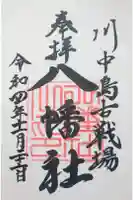 川中島古戦場
奉拝
八幡社
令和四年十一月